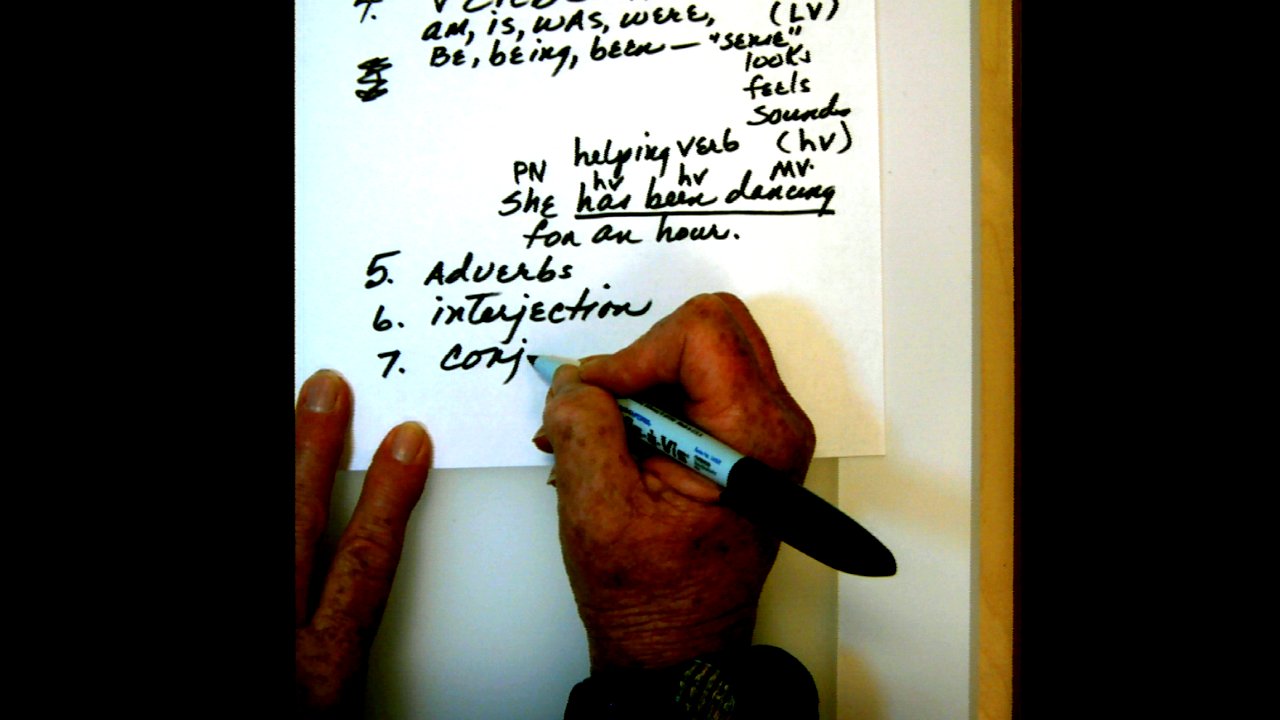 4.
am, is, was, were, (LV)
BE, being, been — "sense"
looks
feels
sounds
helping verb (hv)
PN hv hv MV.
She has been dancing
for an hour.
5. Adverbs
6. interjection
7. conj
Vis-à-Vis